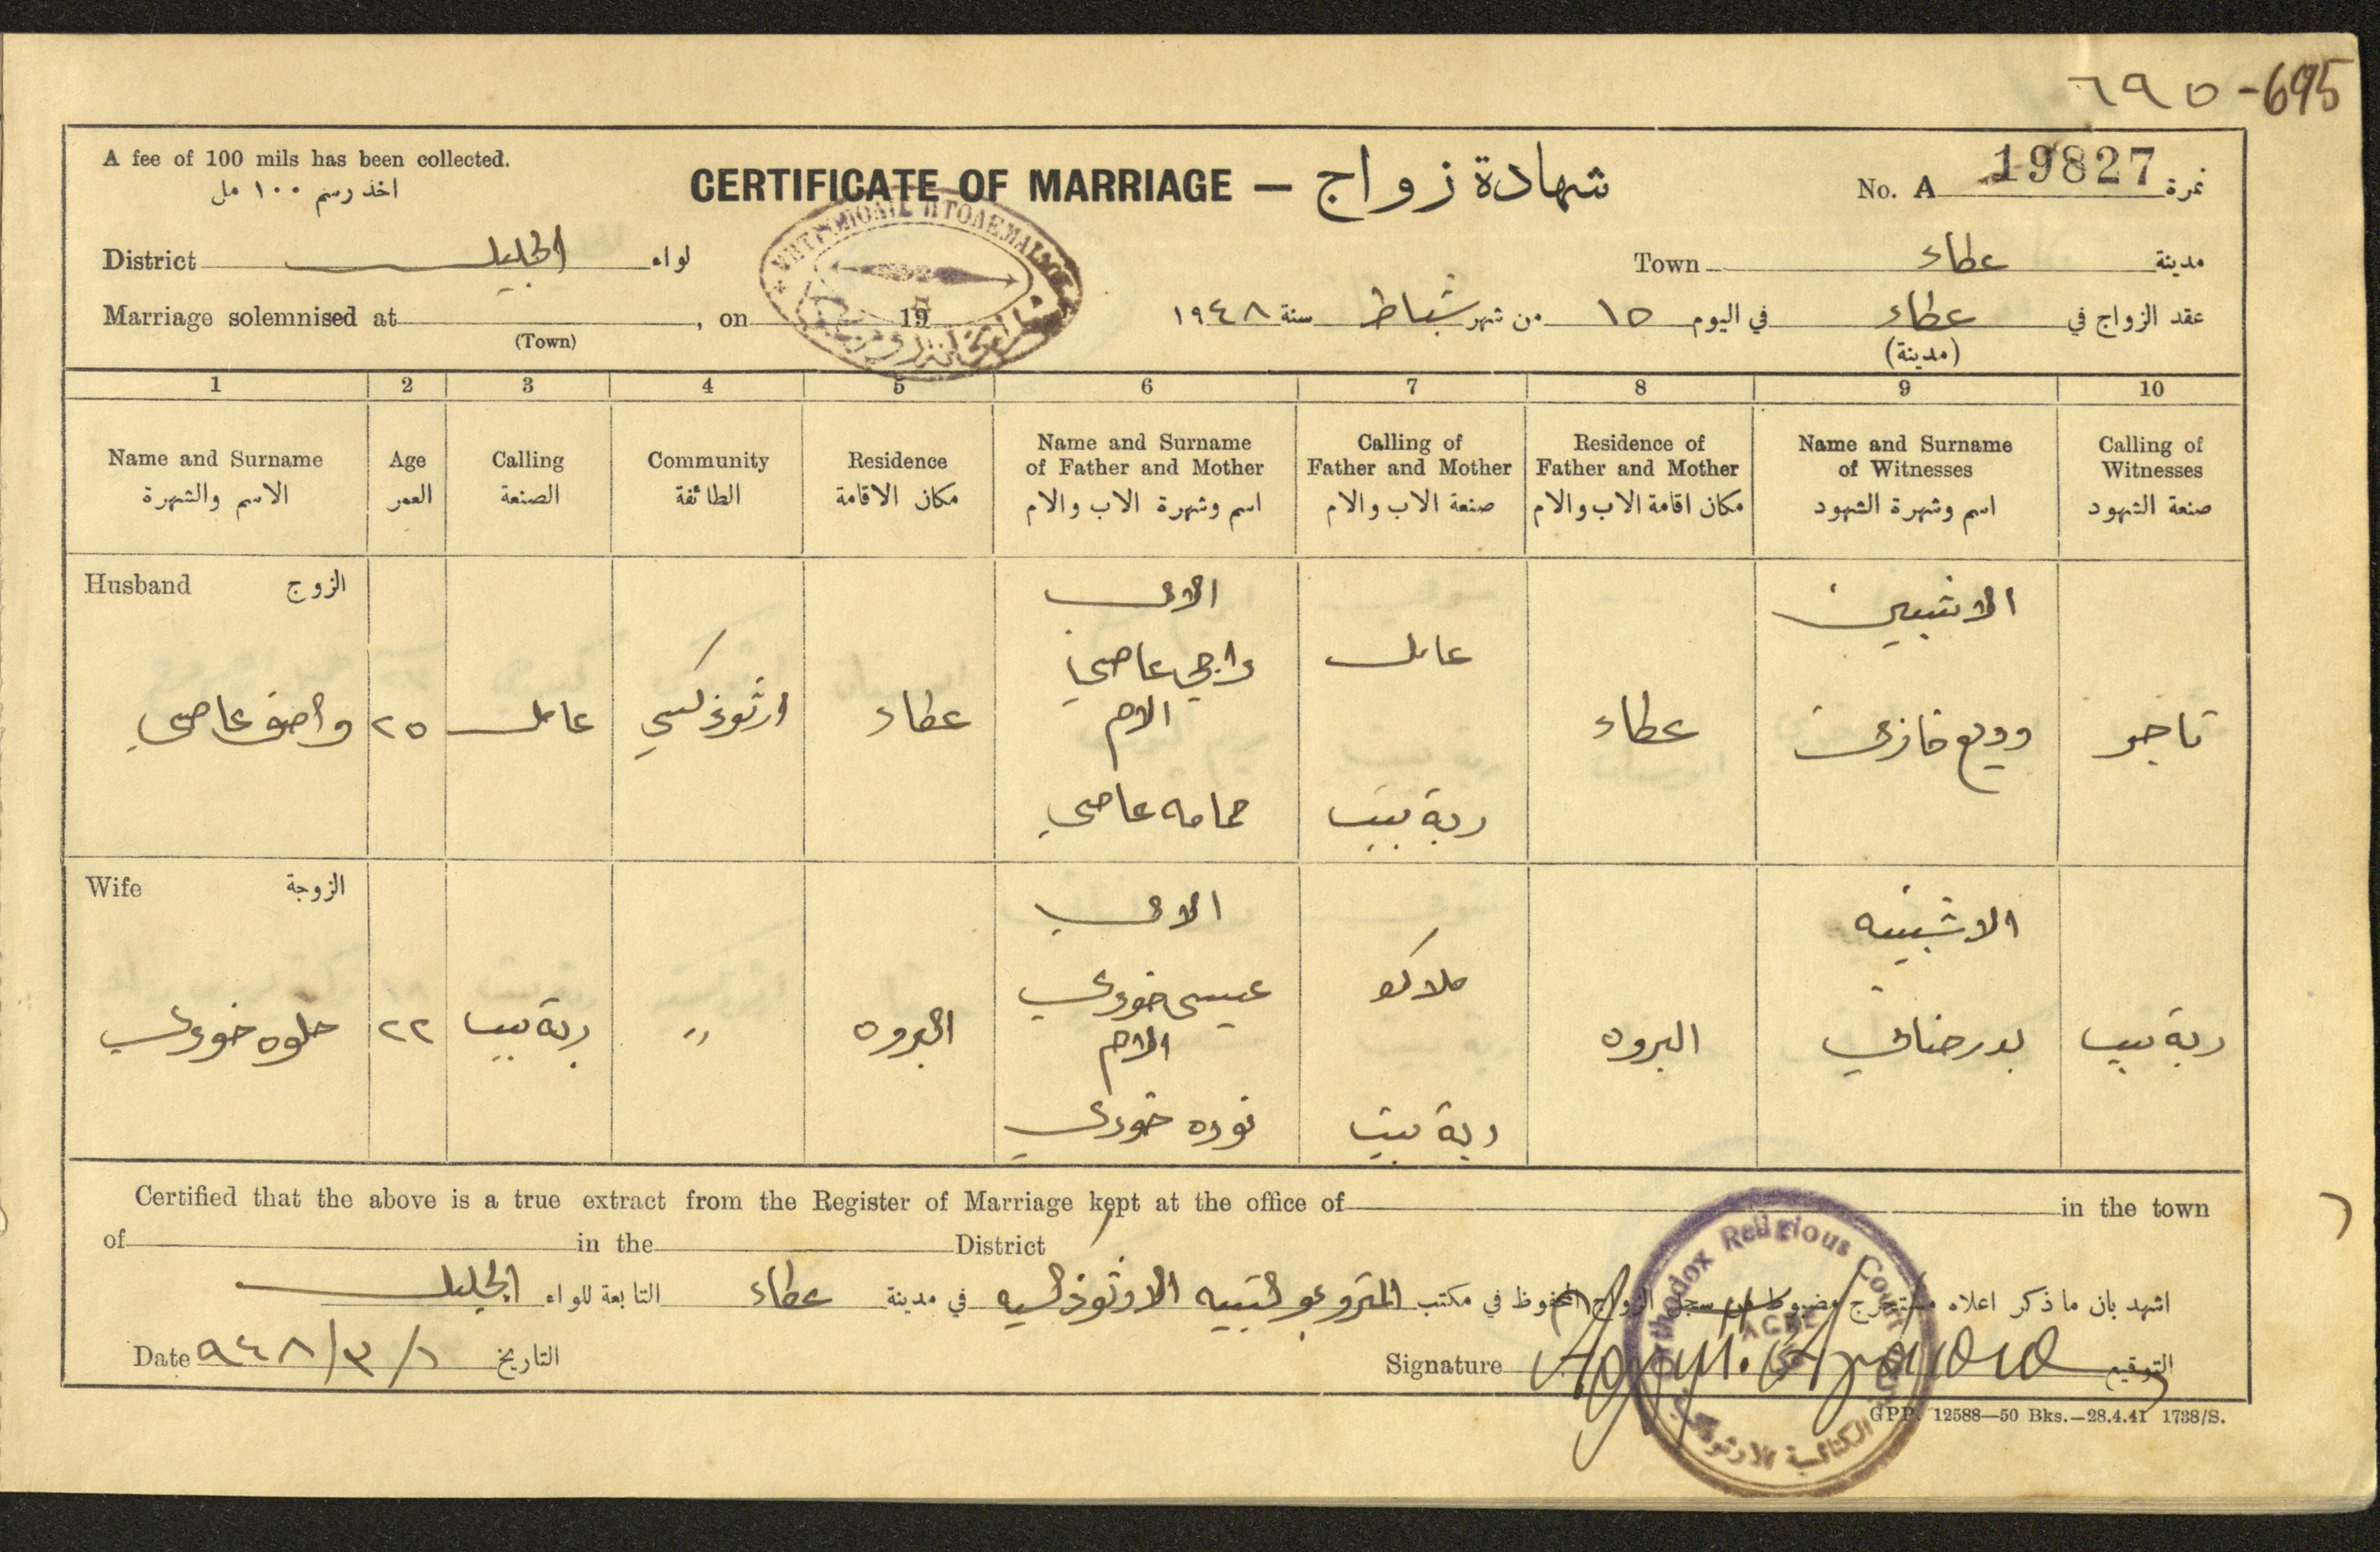 ٦٩٥ - 695
A fee of 100 mils has been collected.
اخذ رسم ١٠٠ مل
CERTIFICATE OF MARRIAGE — شهادة زواج
No. A 19827 نمرة
District الجليل لواء
Town عكاء مدينة
Marriage solemnised at , on 19
(Town)
عقد الزواج في عكاء في اليوم ١٥ من شهر شباط سنة ١٩٤٨
(مدينة)
ΜΗΤΡΟΠΟΛΙΣ ΠΤΟΛΕΜΑΙΔΟΣ
1 2 3 4 5 6 7 8 9 10
Name and Surname
الاسم والشهرة
Age
العمر
Calling
الصنعة
Community
الطائفة
Residence
مكان الاقامة
Name and Surname
of Father and Mother
اسم وشهرة الاب والام
Calling of
Father and Mother
صنعة الاب والام
Residence of
Father and Mother
مكان اقامة الاب والام
Name and Surname
of Witnesses
اسم وشهرة الشهود
Calling of
Witnesses
صنعة الشهود
Husband الزوج
واصف عاصي
٢٥
عامل
ارثوذكسي
عكاء
الاب
راجي عاصي
الام
حمامه عاصي
عامل
ربة بيت
عكاء
الاشبين
وديع
تاجر
Wife الزوجة
حلوه خوري
٢٢
ربة بيت
"
البروه
الاب
عيسى خوري
الام
نوره خوري
ملاك
ربة بيت
البروه
الاشبينه
بدر
ربة بيت
Certified that the above is a true extract from the Register of Marriage kept at the office of in the town
of in the District
اشهد بان ما ذكر اعلاه مستخرج مضبوط من سجل الزواج المحفوظ في مكتب المتروبوليتيه الارثوذكسيه في مدينة عكاء التابعة للواء الجليل
Date ٩٤٨/٣/١ التاريخ
Signature التوقيع
Orthodox Religious Court
ACRE
عكا
GPP. 12588—50 Bks.—28.4.41 1738/S.